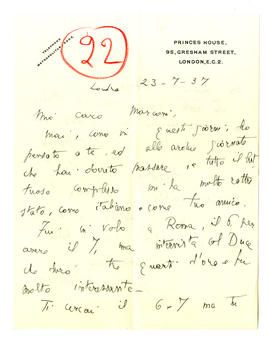 TELEPHONE
METROPOLITAN
22
PRINCES HOUSE,
95, GRESHAM STREET,
LONDON, E.C.2.
Londra
23-7-37
Mio caro Marconi,
Mai, come in questi giorni, ho
pensato a te ed alle archi
che hai dovuto passare, e tutto il
tuoso complesso mi ha molto
stato, come italiano e come tuo amico.
Fui in volo a Roma, il 6 per
avere il 7, una intervista col Duce
che durò tre quarti d'ora e fu
molto interessante.
Ti cercai il 6-7 ma tu